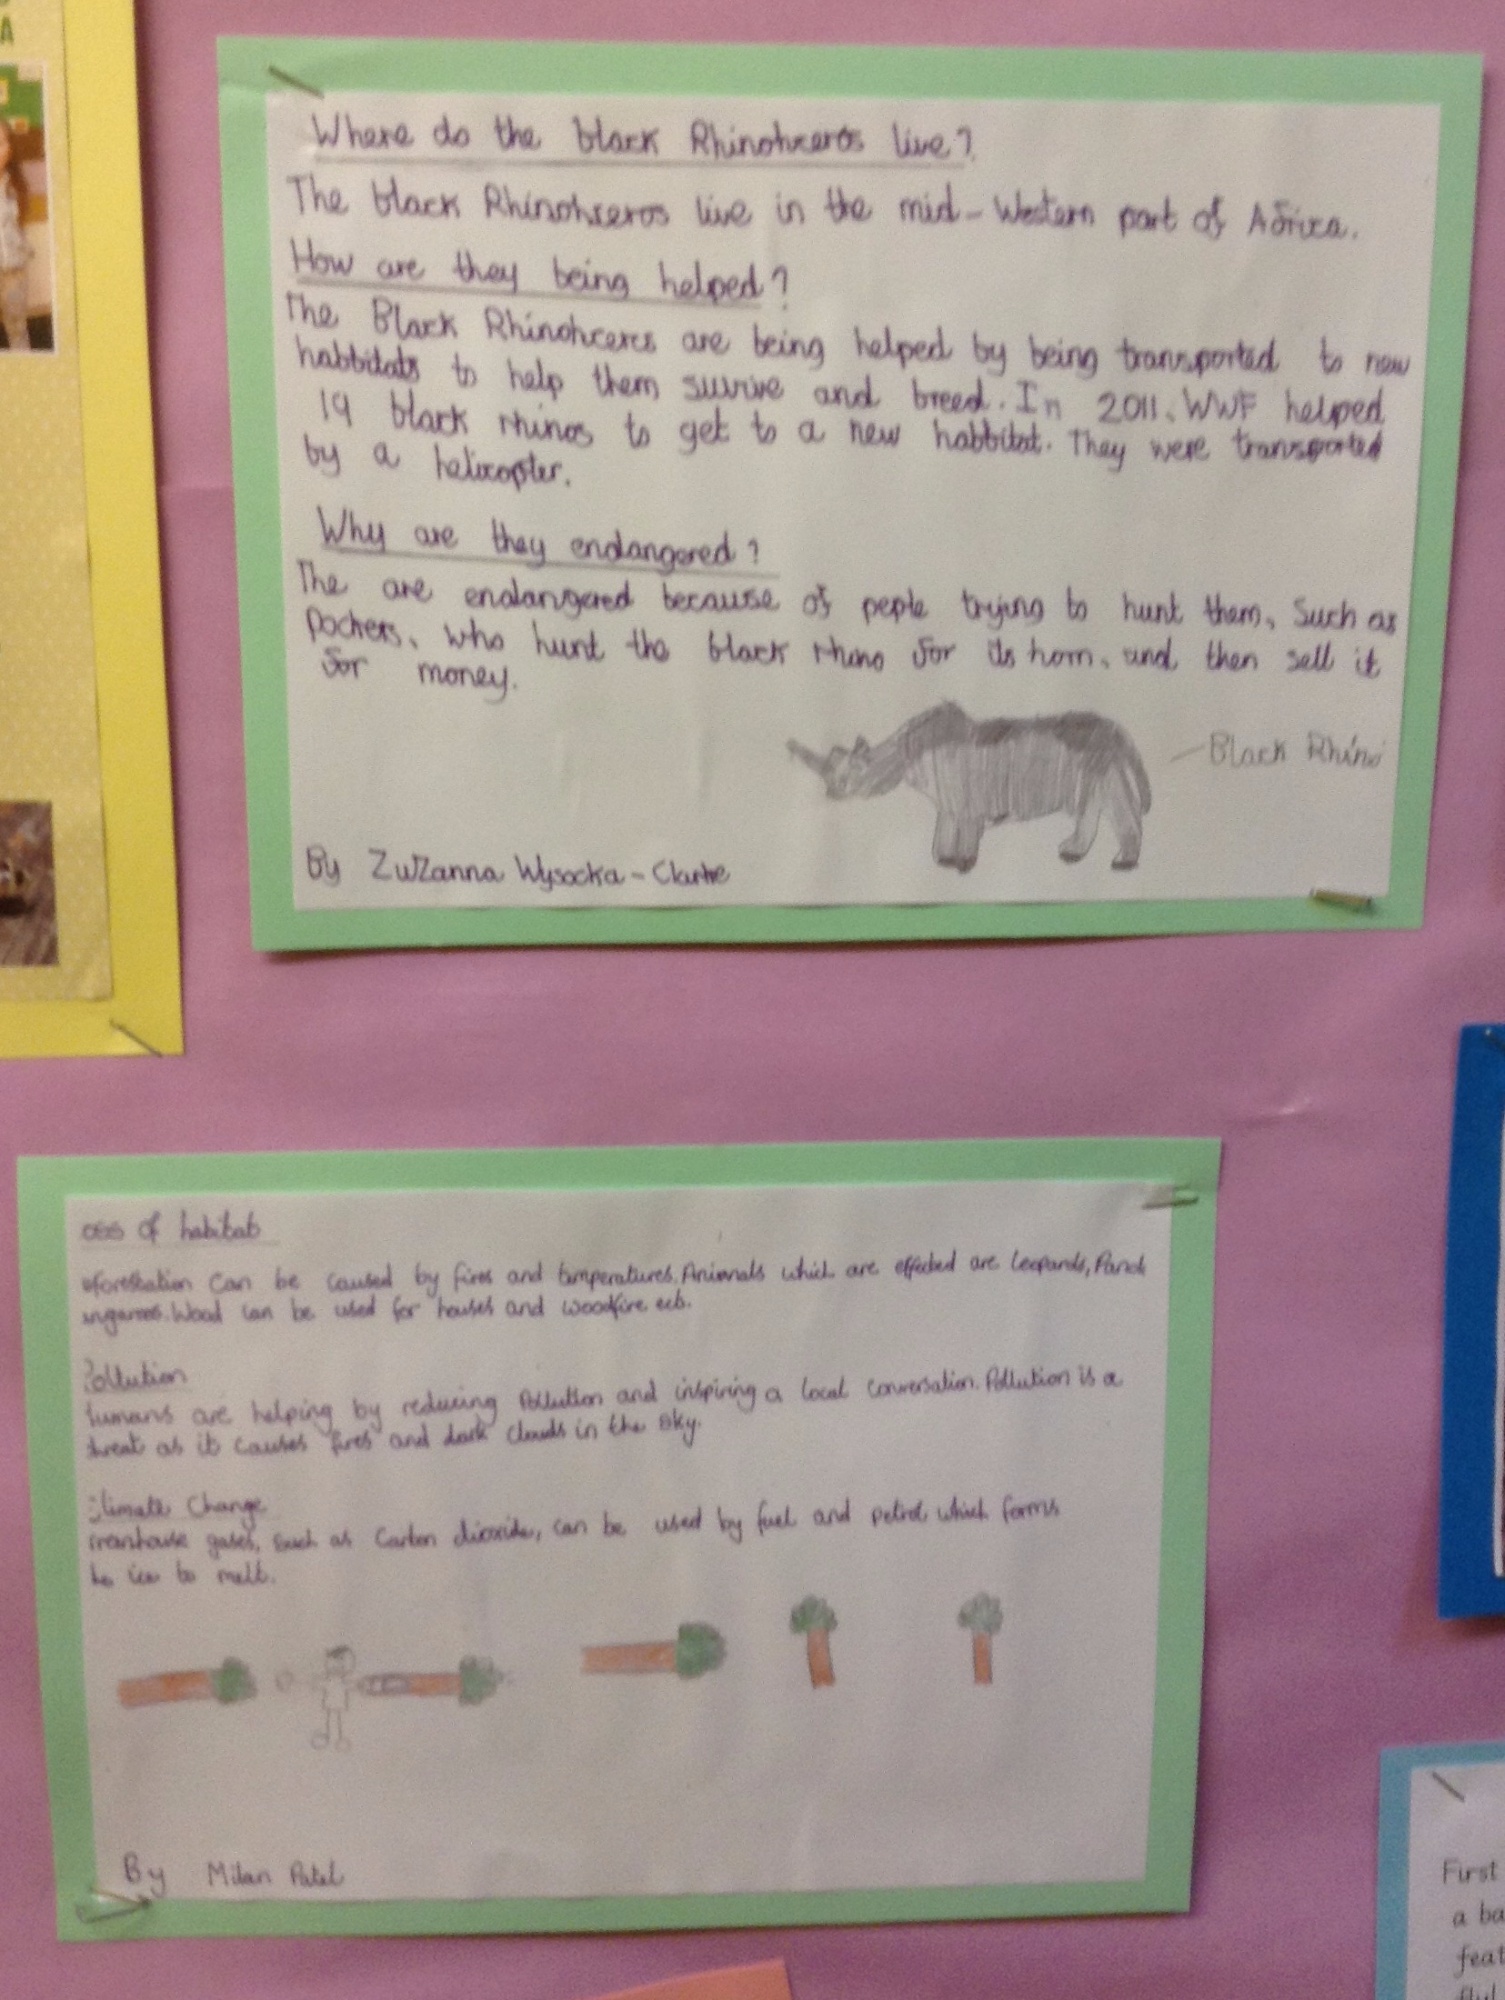 A
Where do the black Rhinohceros live?
The black Rhinohceros live in the mid-Western part of Africa.
How are they being helped?
The Black Rhinohceres are being helped by being transported to new
habbitats to help them survive and breed. In 2011, WWF helped
19 black rhinos to get to a new habbitat. They were transported
by a helicopter.
Why are they endangered?
The are endangered because of peple trying to hunt them, Such as
Pochers, who hunt the black rhino for its horn, and then sell it
for money.
Black Rhino
By ZuZanna Wysocka-Clarke
oss of habitat
eforestation Can be caused by fires and temperatures. Animals which are effected are leopards, Panda
angaroos. Wood can be used for houses and woodfire ect.
Pollution
Humans are helping by reducing Pollution and inspiring a local conversation. Pollution is a
threat as it causes fires and dark clouds in the sky.
Climate Change
reenhouse gases, such as Carbon dioxide, can be used by fuel and petrol which forms
he ice to melt.
By Milan Patel
First
a ba
feat